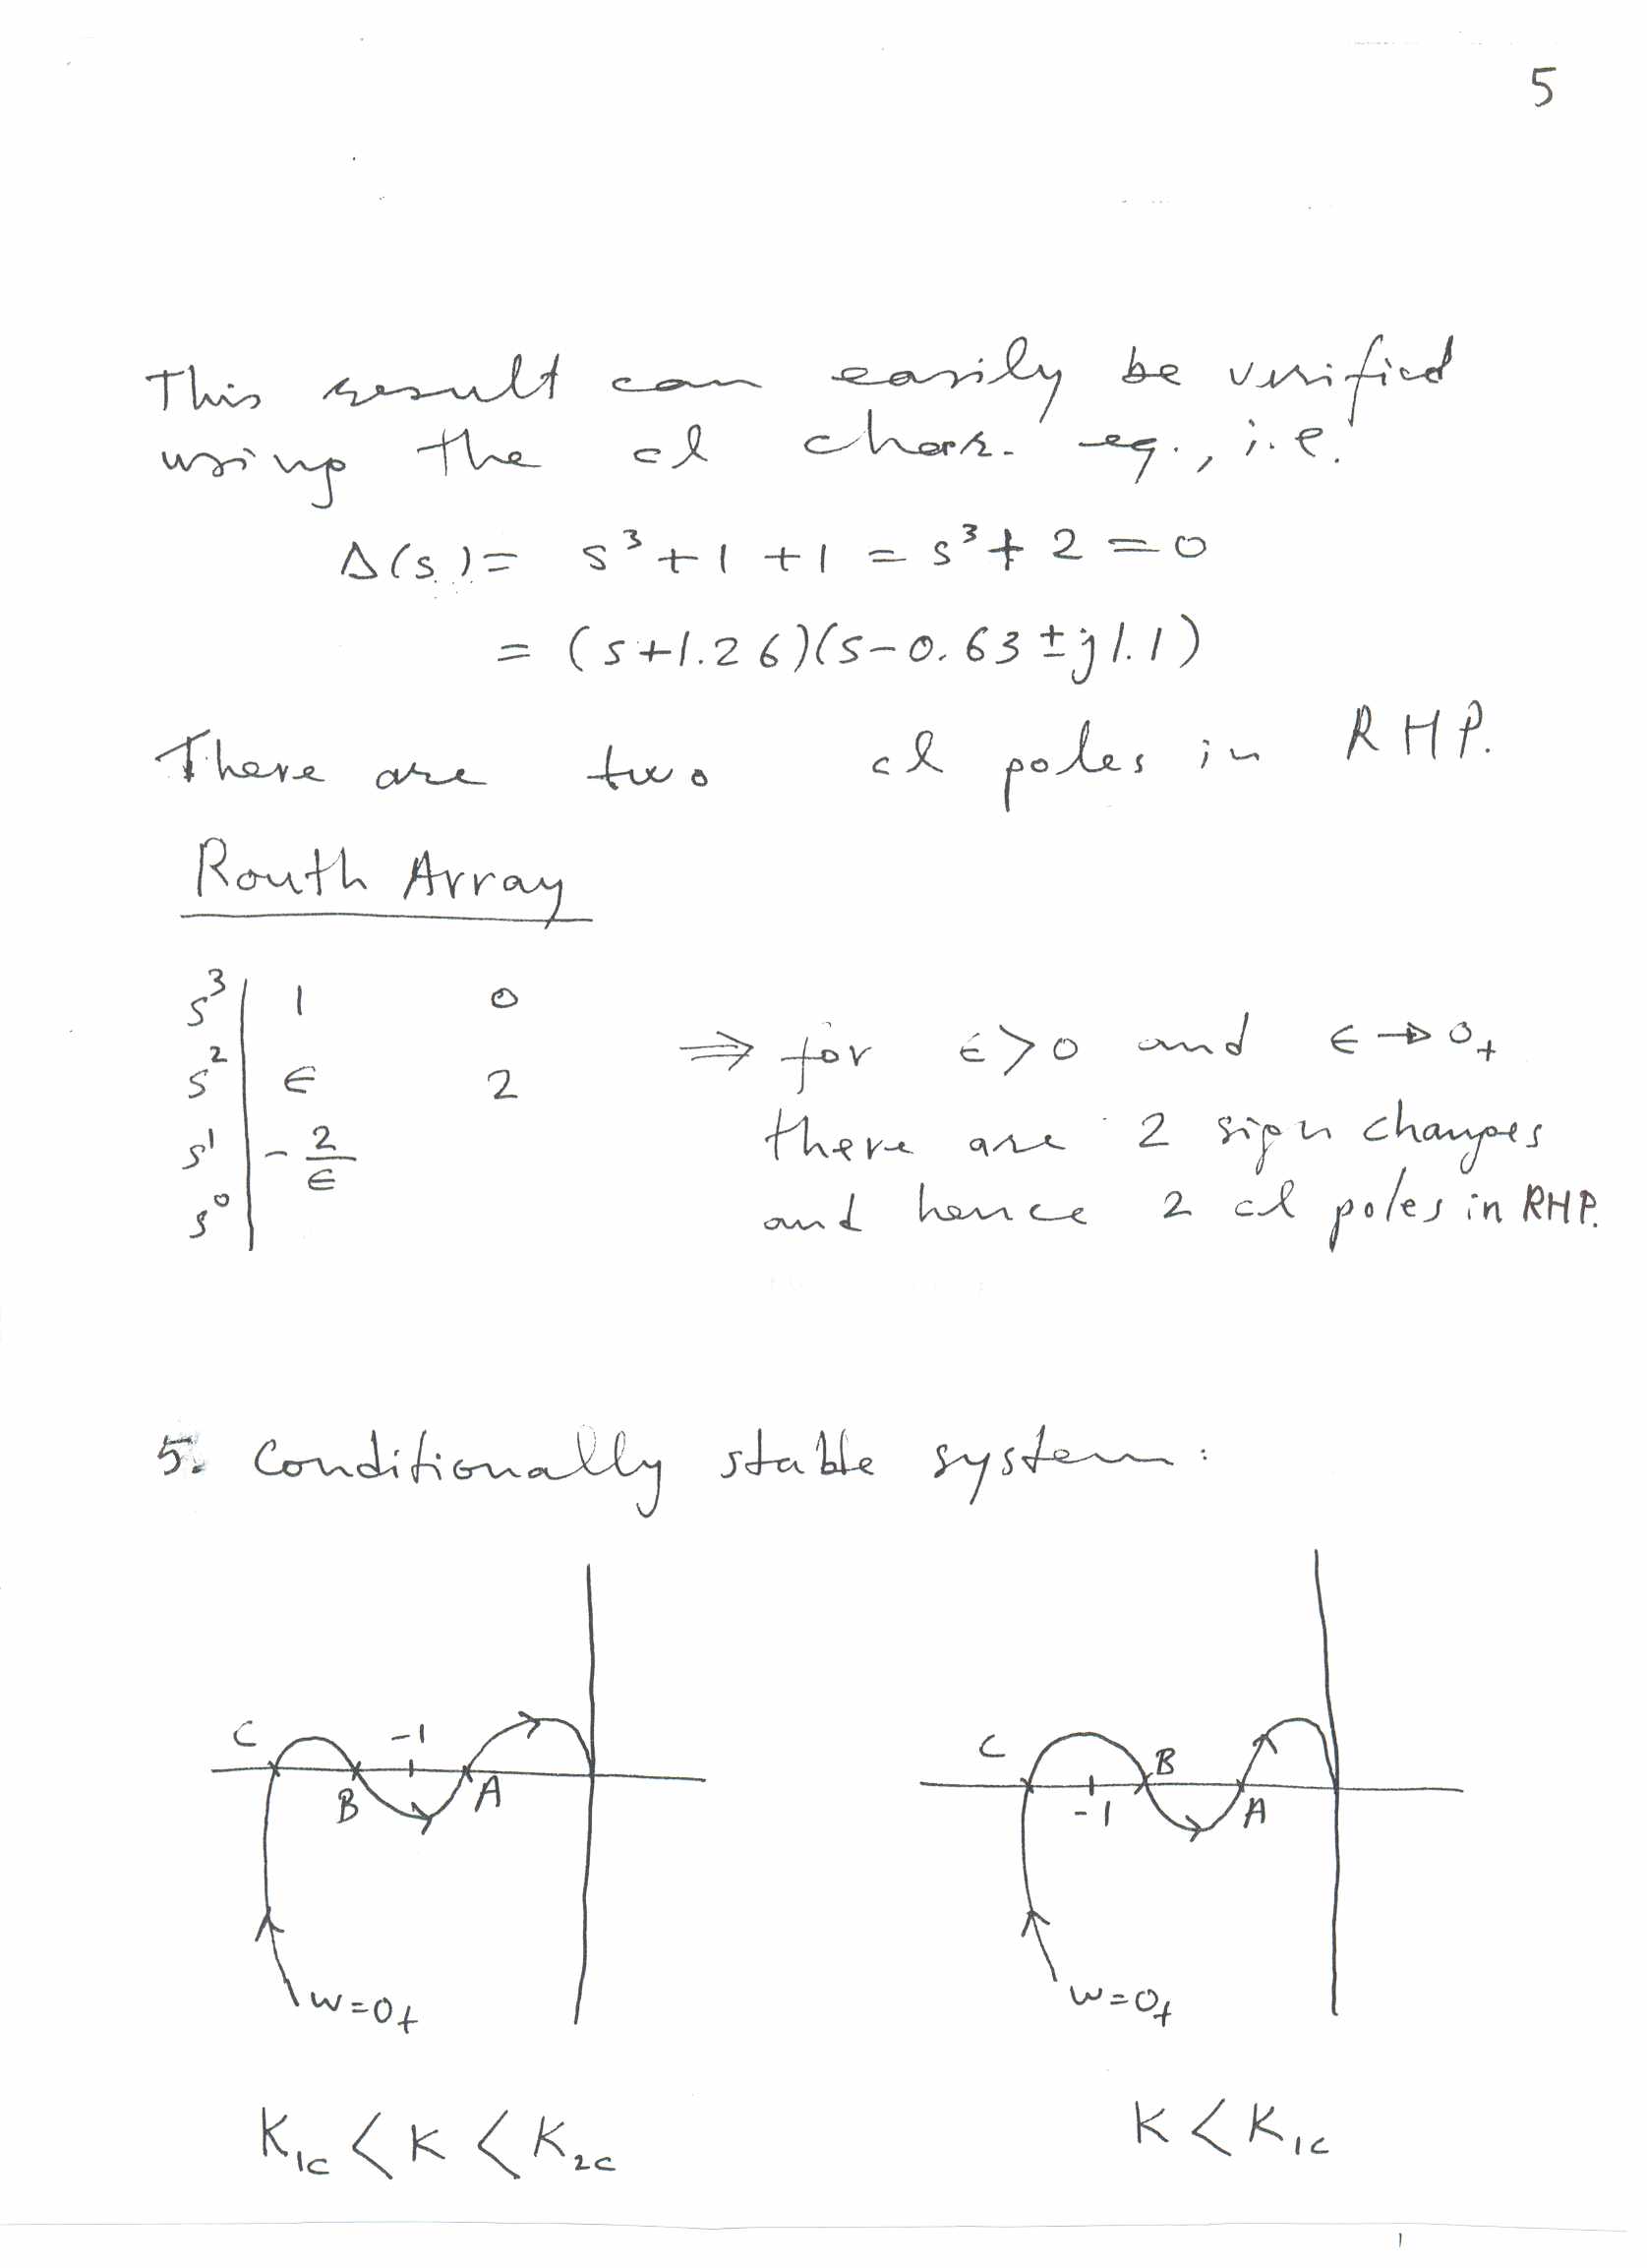 5
This result can easily be verified
using the cl char. eq., i.e.
Δ(s) = s³ + 1 + 1 = s³ + 2 = 0
= (s+1.26)(s-0.63 ± j1.1)
There are two cl poles in RHP.
Routh Array
s³ | 1 0
s² | ϵ 2
s¹ | -2/ϵ
s⁰ |
⇒ for ϵ>0 and ϵ→0₊
there are 2 sign changes
and hence 2 cl poles in RHP.
5. Conditionally stable system:
C -1 B A
w=0₊
K₁c < K < K₂c
C B -1 A
w=0₊
K < K₁c